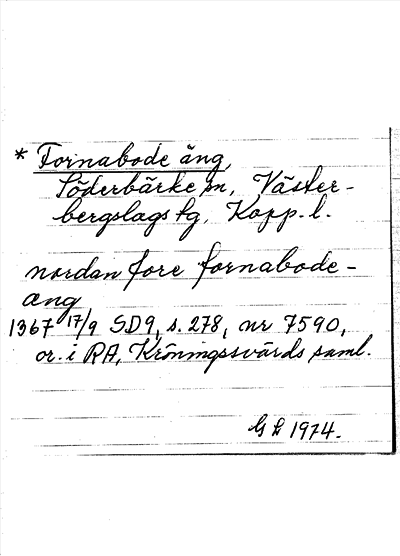 * Fornabode äng,
Söderbärke sn, Väster-
bergslags tg, Kopp. l.
nordan fore fornabode-
æng
1367 17/9 SD9, s. 278, nr 7590,
or. i RA, Kröningssvärds saml.
G L 1974.